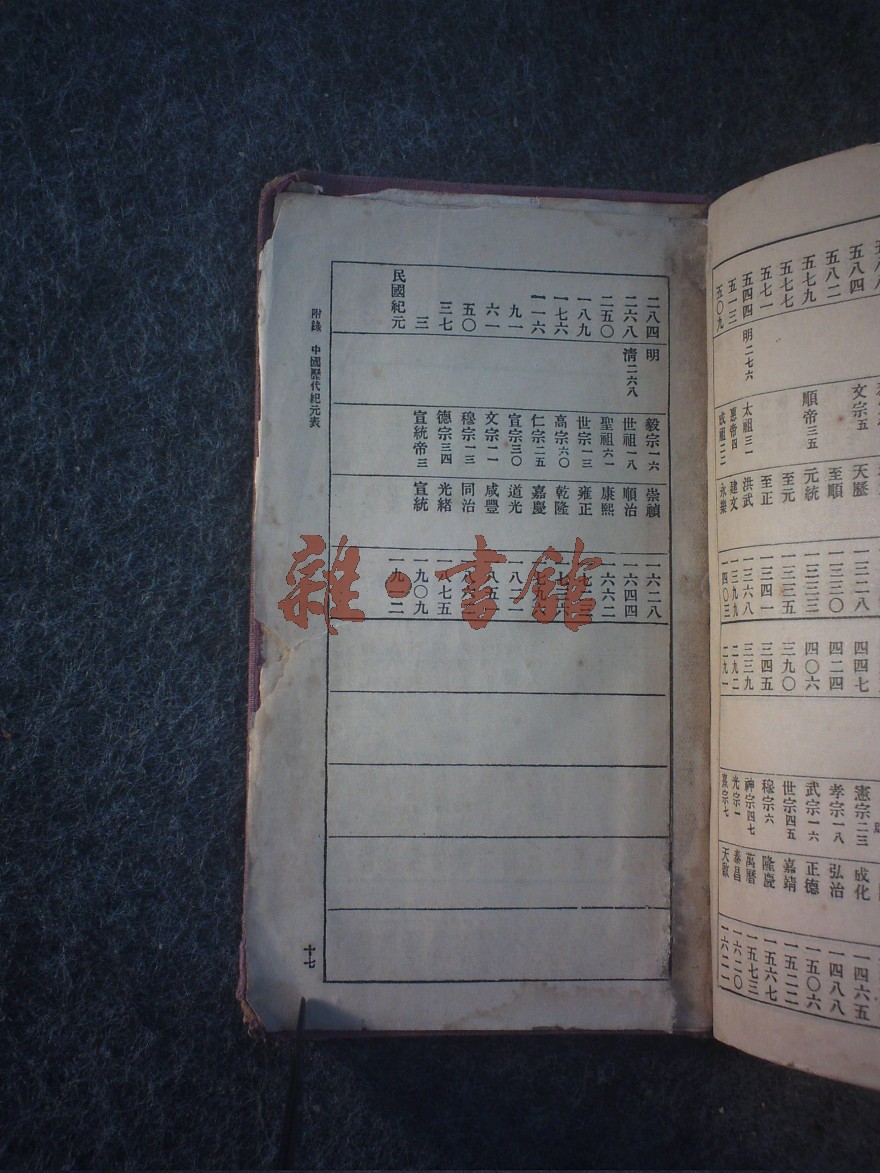 五八四 文宗五 天歷 一三二八
五八二 至順 一三三〇
五七九 順帝三五 元統 一三三三
五七七 至元 一三三五
五七一 至正 一三四一
五四四 明二七六 太祖三一 洪武 一三六八
五一三 惠帝四 建文 一三九九
五〇九 成祖二二 永樂 一四〇三
四四七 憲宗二三 成化 一四六五
四二四 孝宗一八 弘治 一四八八
四〇六 武宗一六 正德 一五〇六
三九〇 世宗四五 嘉靖 一五二二
三四五 穆宗六 隆慶 一五六七
三三九 神宗四七 萬曆 一五七三
二九二 光宗一 泰昌 一六二〇
二九一 熹宗七 天啟 一六二一
二八四 明 毅宗一六 崇禎 一六二八
二六八 清二六八 世祖一八 順治 一六四四
二五〇 聖祖六一 康熙 一六六二
一八九 世宗一三 雍正
一七六 高宗六〇 乾隆 一七三六
一一六 仁宗二五 嘉慶 一七九六
九一 宣宗三〇 道光 一八二一
六一 文宗一一 咸豐 一八五一
五〇 穆宗一三 同治 一八六二
三七 德宗三四 光緒 一八七五
三 宣統帝三 宣統 一九〇九
民國紀元 一九一二
附錄 中國歷代紀元表
十七
雜·書館